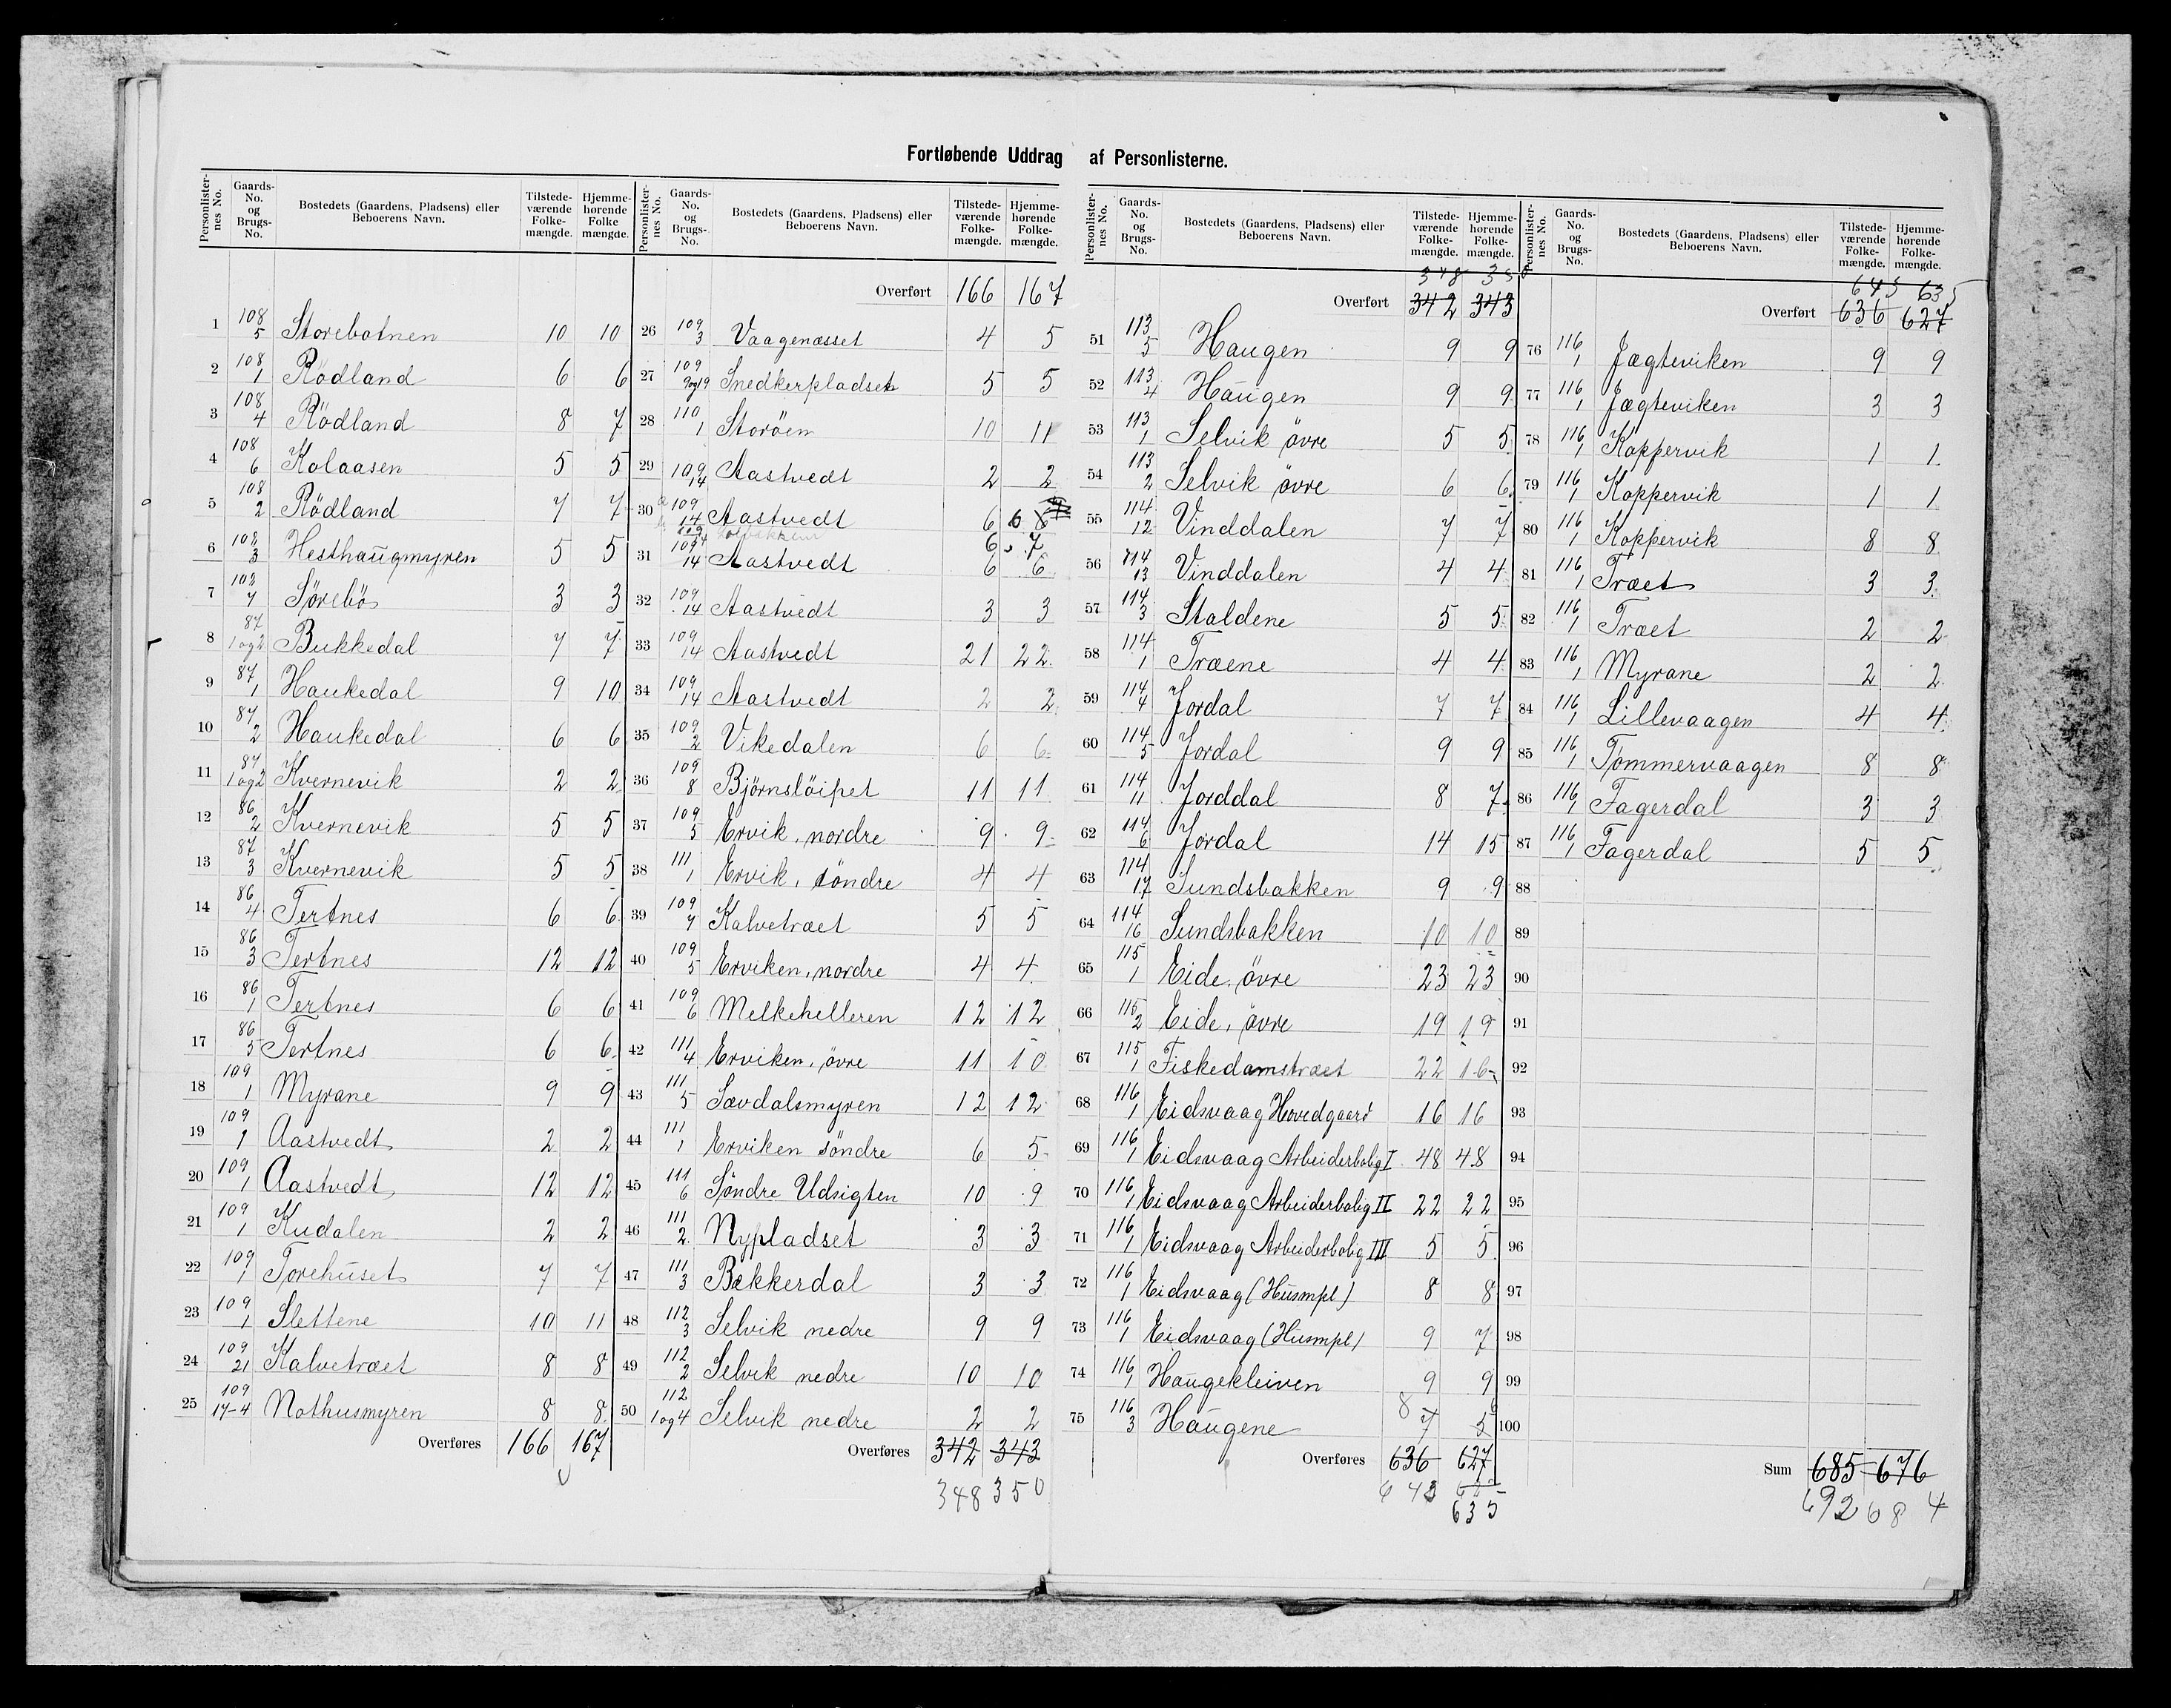 Fortløbende Uddrag af Personlisterne.
Personlister-nes No. Gaards-No. og Brugs-No. Bostedets (Gaardens, Pladsens) eller Beboerens Navn. Tilstede-værende Folke-mængde. Hjemme-hørende Folke mængde.
1 108 5 Storebotnen 10 10
2 108 1 Rödland 6 6
3 108 4 Rödland 8 7
4 108 6 Kolaasen 5 5
5 108 2 Rödland 7 7
6 108 3 Hesthaugmyren 5 5
7 108 7 Sørebö 3 3
8 87 1 og 2 Bukkedal 7 7
9 87 1 Haukedal 9 10
10 87 2 Haukedal 6 6
11 87 1 og 2 Kvernevik 2 2
12 86 2 Kvernevik 5 5
13 87 3 Kvernevik 5 5
14 86 4 Tertnes 6 6
15 86 3 Tertnes 12 12
16 86 1 Tertnes 6 6
17 86 5 Tertnes 6 6
18 109 1 Myrane 9 9
19 109 1 Aastvedt 2 2
20 109 1 Aastvedt 12 12
21 109 1 Kudalen 2 2
22 109 1 Torehuset 7 7
23 109 1 Slettene 10 11
24 109 21 Kalvetræet 8 8
25 109 17-4 Nothusmyren 8 8
Overføres 166 167
Personlister-nes No. Gaards-No. og Brugs-No. Bostedets (Gaardens, Pladsens) eller Beboerens Navn. Tilstede-værende Folke-mængde. Hjemme-hørende Folke-mængde.
Overført 166 167
26 109 3 Vaagenæsset 4 5
27 109 9 og 19 Snedkerpladsen 5 5
28 110 1 Storöen 10 11
29 109 14 Aastvedt 2 2
30 109 14 Aastvedt 6 6
6 7
31 109 14 Aastvedt 6 6
32 109 14 Aastvedt 3 3
33 109 14 Aastvedt 21 22
34 109 14 Aastvedt 2 2
35 109 2 Vikedalen 6 6
36 109 8 Björnslöipet 11 11
37 109 5 Ervik, nordre 9 9
38 111 1 Ervik, söndre 4 4
39 109 7 Kalvetræet 5 5
40 109 5 Erviken, nordre 4 4
41 109 6 Melkehelleren 12 12
42 111 4 Erviken, övre 11 10
43 111 5 Sævdalsmyren 12 12
44 111 1 Erviken söndre 6 5
45 111 6 Söndre Udsigten 10 9
46 111 2 Nypladset 3 3
47 111 3 Bekkerdal 3 3
48 112 3 Selvik nedre 9 9
49 112 2 Selvik nedre 10 10
50 112 1 og 4 Selvik nedre 2 2
Overføres 342 343
348 350
Personlister-nes No. Gaards-No. og Brugs-No. Bostedets (Gaardens, Pladsens) eller Beboerens Navn. Tilstede-værende Folke-mængde. Hjemme-hørende Folke-mængde.
348 350
Overført 342 343
51 113 5 Haugen 9 9
52 113 4 Haugen 9 9
53 113 1 Selvik övre 5 5
54 113 2 Selvik övre 6 6
55 114 12 Vinddalen 7 7
56 114 13 Vinddalen 4 4
57 114 3 Staldene 5 5
58 114 1 Træene 4 4
59 114 4 Jordal 7 7
60 114 5 Jordal 9 9
61 114 11 Jorddal 8 7
62 114 6 Jordal 14 15
63 114 17 Sundsbakken 9 9
64 114 16 Sundsbakken 10 10
65 115 1 Eide, övre 23 23
66 115 2 Eide, övre 19 19
67 115 1 Fiskedamstræet 22 16
68 116 1 Eidsvaag Hovedgaard 16 16
69 116 1 Eidsvaag Arbeiderbolig I 48 48
70 116 1 Eidsvaag Arbeiderbolig II 22 22
71 116 1 Eidsvaag Arbeiderbolig III 5 5
72 116 1 Eidsvaag (Husmpl) 8 8
73 116 1 Eidsvaag (Husmpl) 9 7
74 116 1 Haugekleiven 9 9
75 116 3 Haugene 8 7 5
Overføres 636 627
643
635
Personlister-nes No. Gaards-No. og Brugs-No. Bostedets (Gaardens, Pladsens) eller Beboerens Navn. Tilstede-værende Folke-mængde. Hjemme-hørende Folke-mængde.
643 635
Overført 636 627
76 116 1 Jægteviken 9 9
77 116 1 Jægteviken 3 3
78 116 1 Koppervik 1 1
79 116 1 Koppervik 1 1
80 116 1 Koppervik 8 8
81 116 1 Træet 3 3
82 116 1 Træet 2 2
83 116 1 Myrane 2 2
84 116 1 Lillevaagen 4 4
85 116 1 Tømmervaagen 8 8
86 116 1 Fagerdal 3 3
87 116 1 Fagerdal 5 5
88
89
90
91
92
93
94
95
96
97
98
99
100
Sum 685 676
692 684